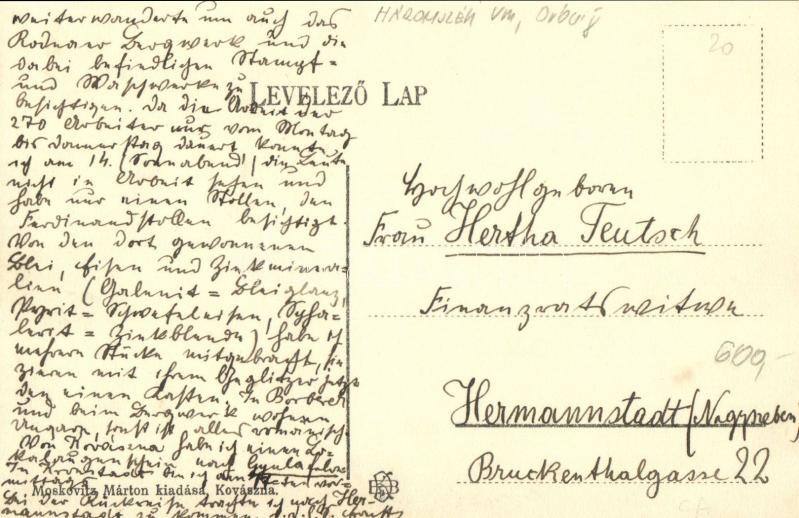 weiterwanderte um auch das
Rodnaer Bergwerk und die
dabei befindlichen Stampf=
und Waschwerke zu
besichtigen. Da die Arbeit der
270 Arbeiter nur vom Montag
bis Donnerstag dauert konnte
ich am 14. (Sonnabend) die Leute
nicht in Arbeit sehen und
habe nur einen Stollen, den
Ferdinandstollen besichtigt.
Von den dort gewonnenen
Blei, Eisen und Zinkminera=
lien (Galenit = Bleiglanz,
Pyrit = Schwefeleisen, Spha=
lerit = Zinkblende) habe ich
mehrere Stücke mitgebracht, sie
zieren mit ihrem Geglitzer jetzt
den einen Kasten. In
und beim Bergwerk wohnen
Ungarn, sonst ist alles romänisch.
Von Kovászna habe ich einen Lo=
kalaugenschein nach
In Kronstadt bin ich am
mittags
Bei der Rückreise trachte ich nach Her=
mannstadt zu kommen.
HÁROMSZÉK vm,
20
LEVELEZŐ LAP
Hochwohlgeboren
Frau Hertha Teutsch
Finanzratswitwe
600,-
Hermannstadt (Nagyszeben)
Bruckenthalgasse 22
Moskovitz Márton kiadása, Kovászna.